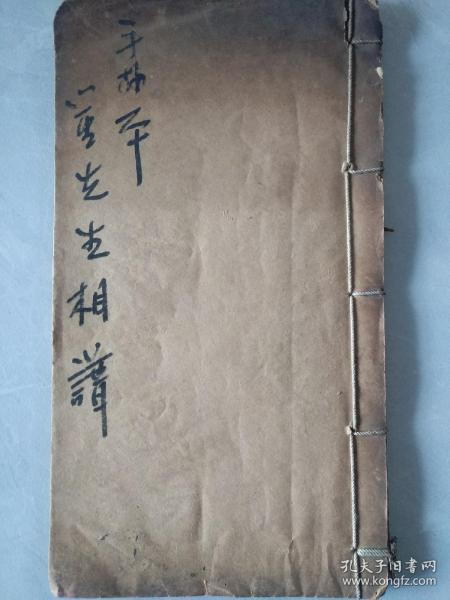 手抄本
先生相
孔夫子旧书网
www.kongfz.com